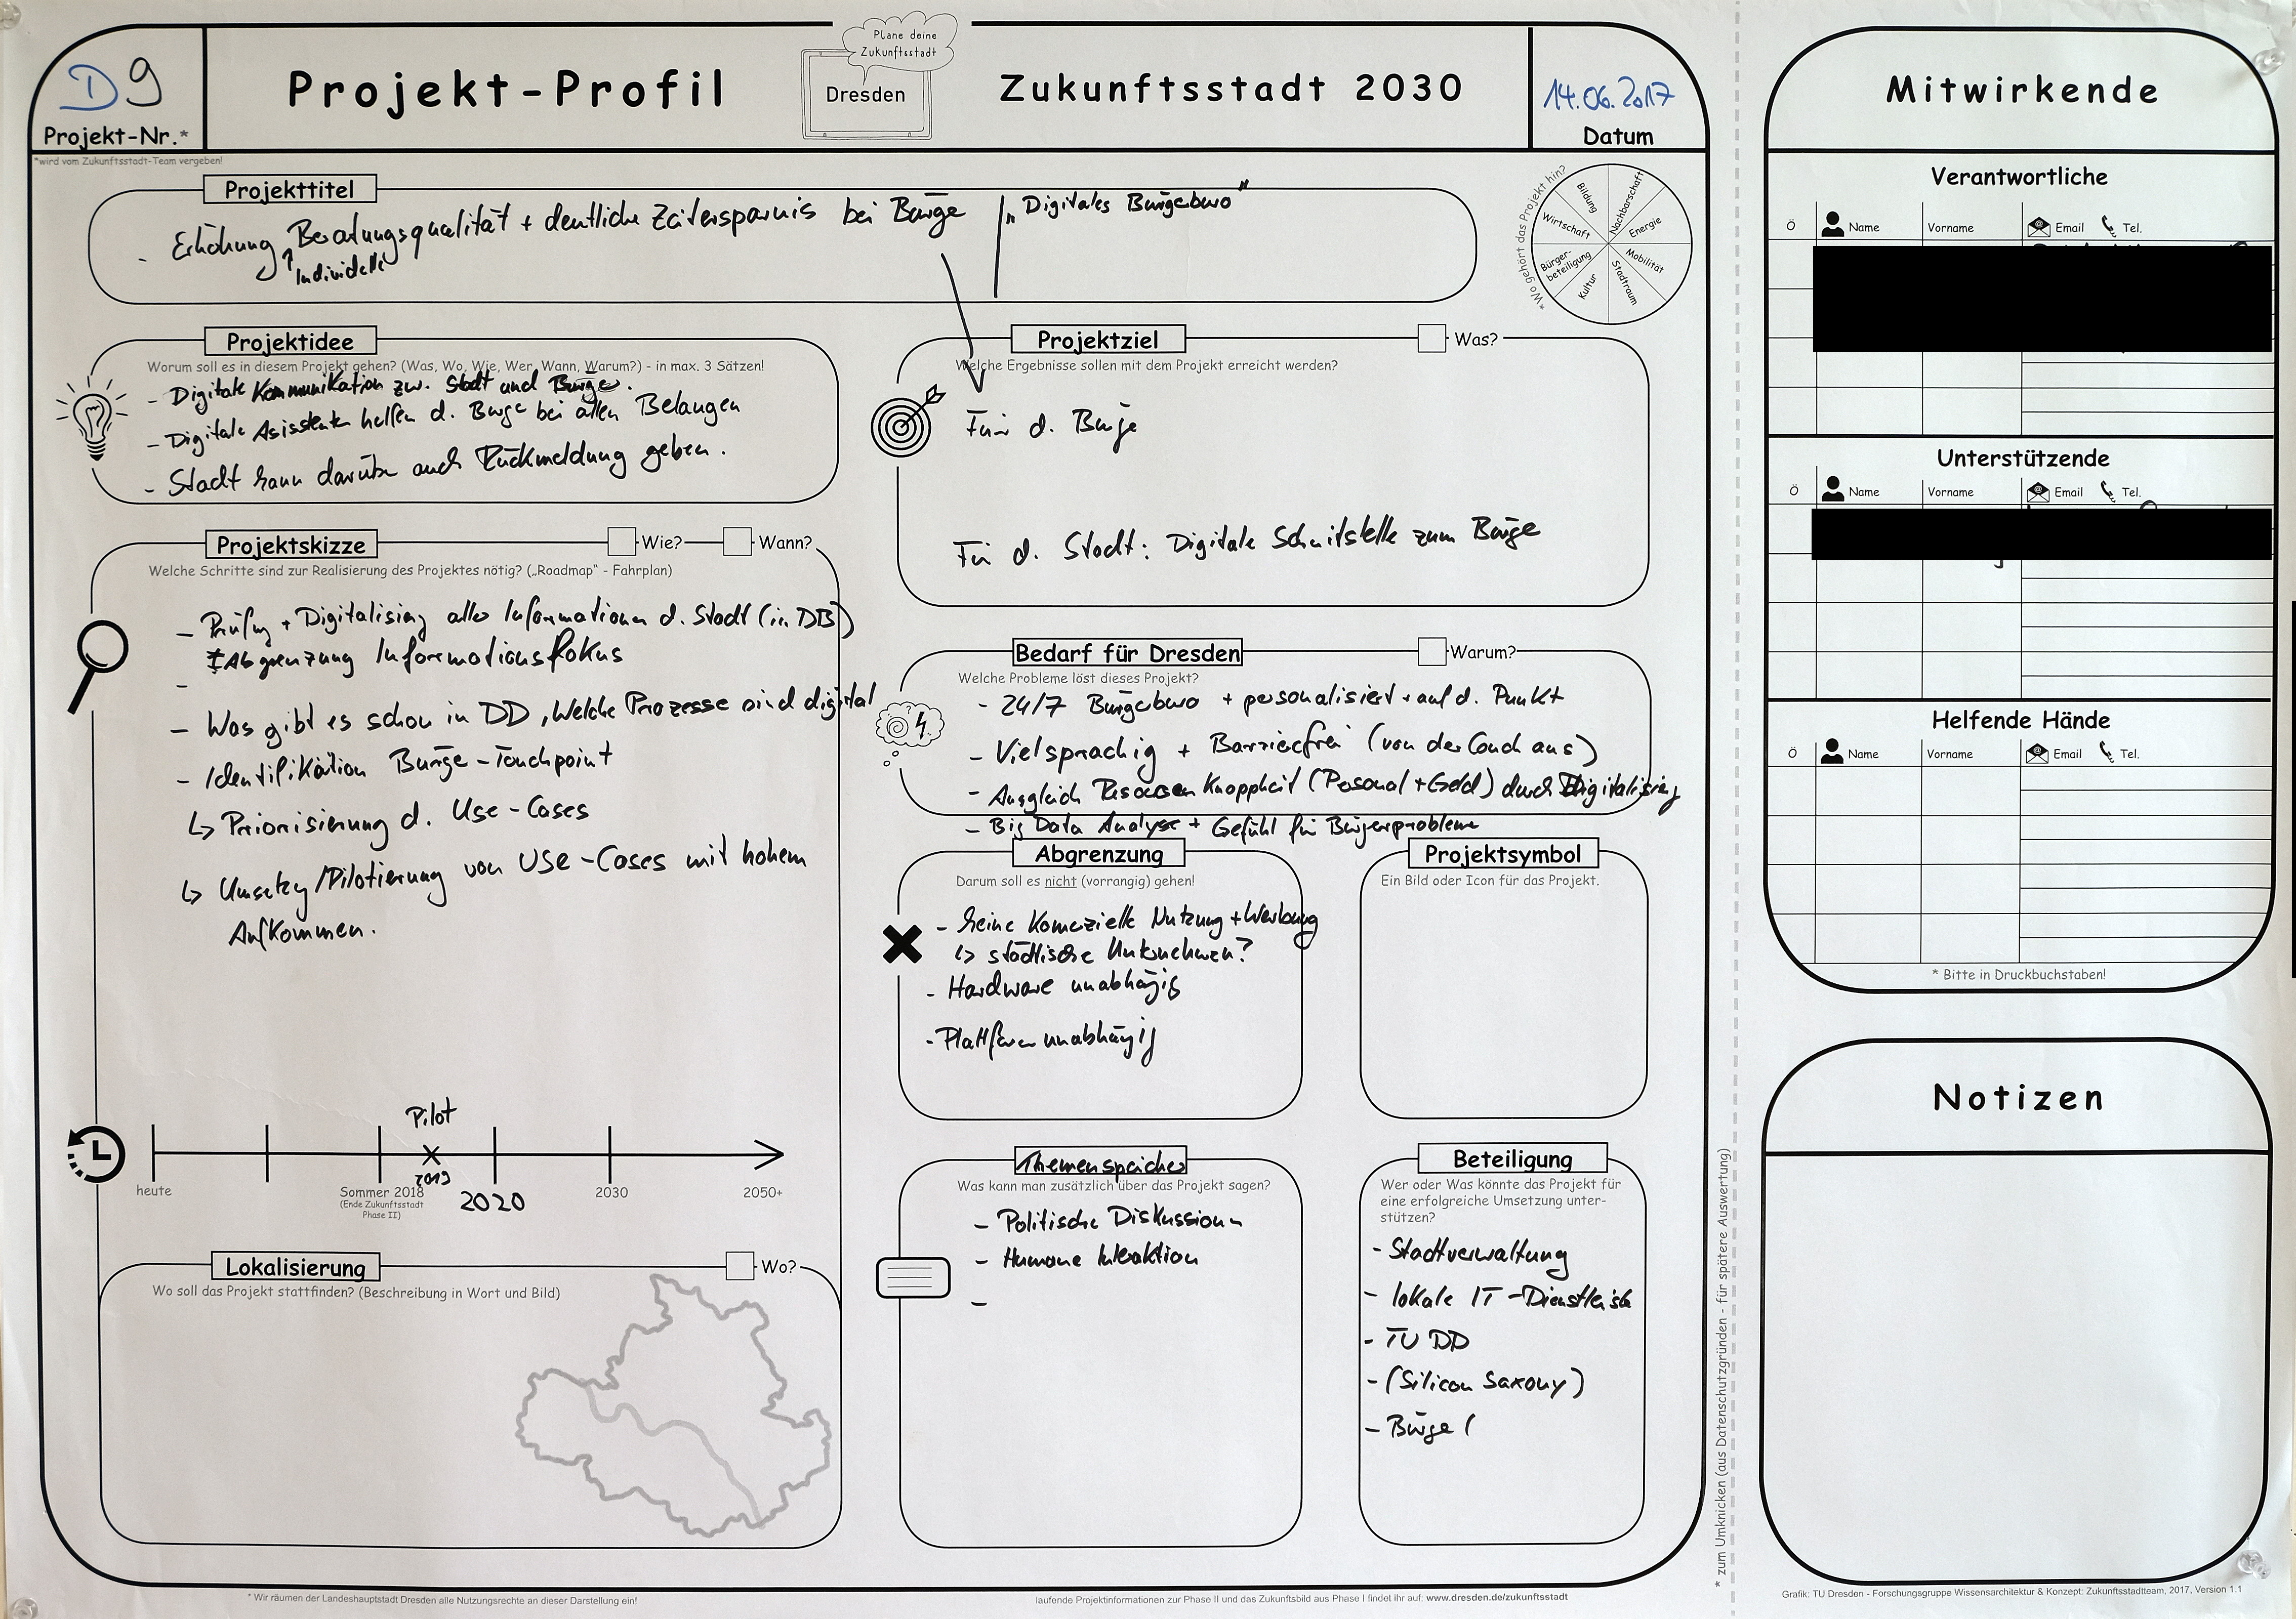 D9
Projekt-Nr.*
*wird vom Zukunftsstadt-Team vergeben!
Projekt-Profil
Plane deine
Zukunftsstadt
Dresden
Zukunftsstadt 2030
14.06.2017
Datum
Projekttitel
- Erhöhung Beratungsqualität + deutliche Zeitersparnis bei Bürger
Individuelle
"Digitales Bürgerbüro"
*Wo gehört das Projekt hin?
Bildung
Nachbarschaft
Wirtschaft
Energie
Bürger-
beteiligung
Mobilität
Kultur
Stadtraum
Projektidee
Worum soll es in diesem Projekt gehen? (Was, Wo, Wie, Wer, Wann, Warum?) - in max. 3 Sätzen!
- Digitale Kommunikation zw. Stadt und Bürger.
- Digitale Asisstenten helfen d. Bürger bei allen Belangen
- Stadt kann darüber auch Rückmeldung geben.
Projektziel
Was?
Welche Ergebnisse sollen mit dem Projekt erreicht werden?
Für d. Bürger
Für d. Stadt: Digitale Schnitstelle zum Bürger
Projektskizze
Wie?
Wann?
Welche Schritte sind zur Realisierung des Projektes nötig? („Roadmap“ - Fahrplan)
- Prüfung + Digitalisierung aller Informationen d. Stadt (in DB)
Abgrenzung Informationsfokus
-
- Was gibt es schon in DD, Welche Prozesse sind digital
- Identifikation Bürger-Touchpoint
↳ Priorisierung d. Use-Cases
↳ Umsetzung/Pilotierung von USE-Cases mit hohem
Aufkommen.
Pilot
2019
heute
Sommer 2018
(Ende Zukunftsstadt
Phase II)
2020
2030
2050+
Lokalisierung
Wo?
Wo soll das Projekt stattfinden? (Beschreibung in Wort und Bild)
Bedarf für Dresden
Warum?
Welche Probleme löst dieses Projekt?
- 24/7 Bürgerbüro + personalisiert + auf d. Punkt
- Vielsprachig + Barrierefrei (von der Couch aus)
- Ausgleich Resourcen Knappheit (Personal + Geld) durch Digitalisierung
- Big Data Analyse + Gefühl für Bürgerprobleme
Abgrenzung
Darum soll es nicht (vorrangig) gehen!
- keine Komerzielle Nutzung + Werbung
↳ städtische Unternehmen?
- Hardware unabhängig
- Plattform unabhängig
Projektsymbol
Ein Bild oder Icon für das Projekt.
Themenspeicher
Was kann man zusätzlich über das Projekt sagen?
- Politische Diskussionen
- Humane Interaktion
-
Beteiligung
Wer oder Was könnte das Projekt für
eine erfolgreiche Umsetzung unter-
stützen?
- Stadtverwaltung
- lokale IT-Dienstleister
- TU DD
- (Silicon Saxony)
- Bürger (
* zum Umknicken (aus Datenschutzgründen - für spätere Auswertung)
Mitwirkende
Verantwortliche
Ö Name Vorname Email Tel.
Unterstützende
Ö Name Vorname Email Tel.
Helfende Hände
Ö Name Vorname Email Tel.
* Bitte in Druckbuchstaben!
Notizen
* Wir räumen der Landeshauptstadt Dresden alle Nutzungsrechte an dieser Darstellung ein!
laufende Projektinformationen zur Phase II und das Zukunftsbild aus Phase I findet ihr auf: www.dresden.de/zukunftsstadt
Grafik: TU Dresden - Forschungsgruppe Wissensarchitektur & Konzept: Zukunftsstadtteam, 2017, Version 1.1